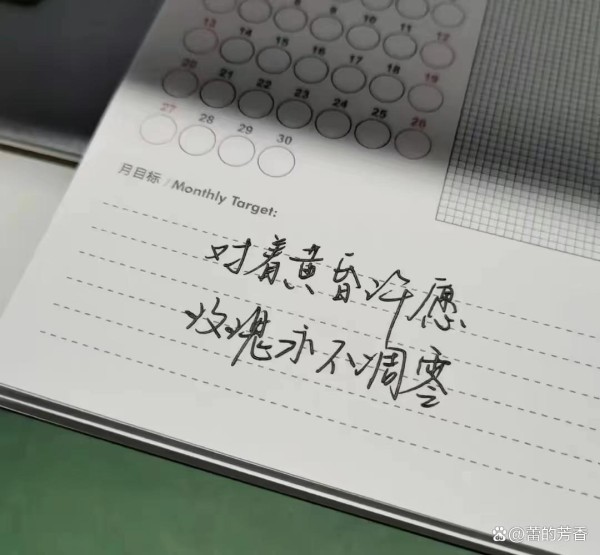 8 9 10 11 12
13 14 15 16 17 18 19
20 21 22 23 24 25 26
27 28 29 30
月目标 / Monthly Target:
对着黄昏许愿
玫瑰永不凋零
蕾的芳香